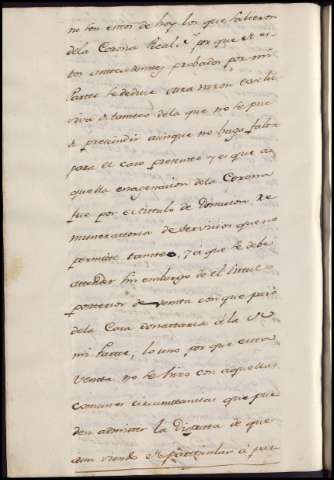 no son estos de hoy los que salieron
dela Corona Real. Y por que de es-
tos antecedentes probados por mi
Parte se deduce otra razon exclu
siva de tanteo dela que no se pue
de prescindir aunque no haga falta
para el caso presente y es que a
quella enagenacion dela Corona
fue por el titulo de Donacion Re
muneratoria de servicios que no
permite tanteo, y á que se debe
atender sin embargo de el titulo
posterior de venta con que pasó
dela Casa donataria á la de
mi Parte, lo uno por que esta
Venta no se hizo con aquellas
comunes circunstancias que pue
den admitir la Disputa de que
aun siendo de particular á par